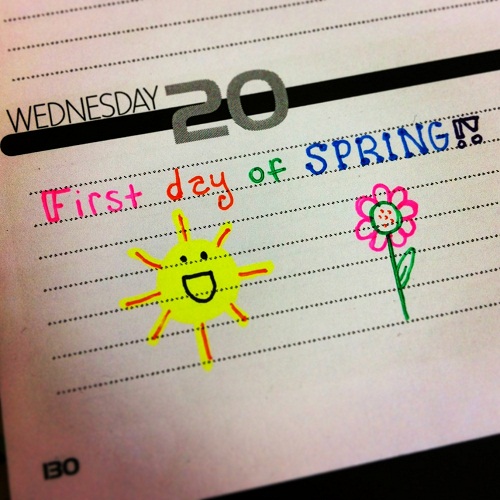 WEDNESDAY 20
First day of SPRING!!
130